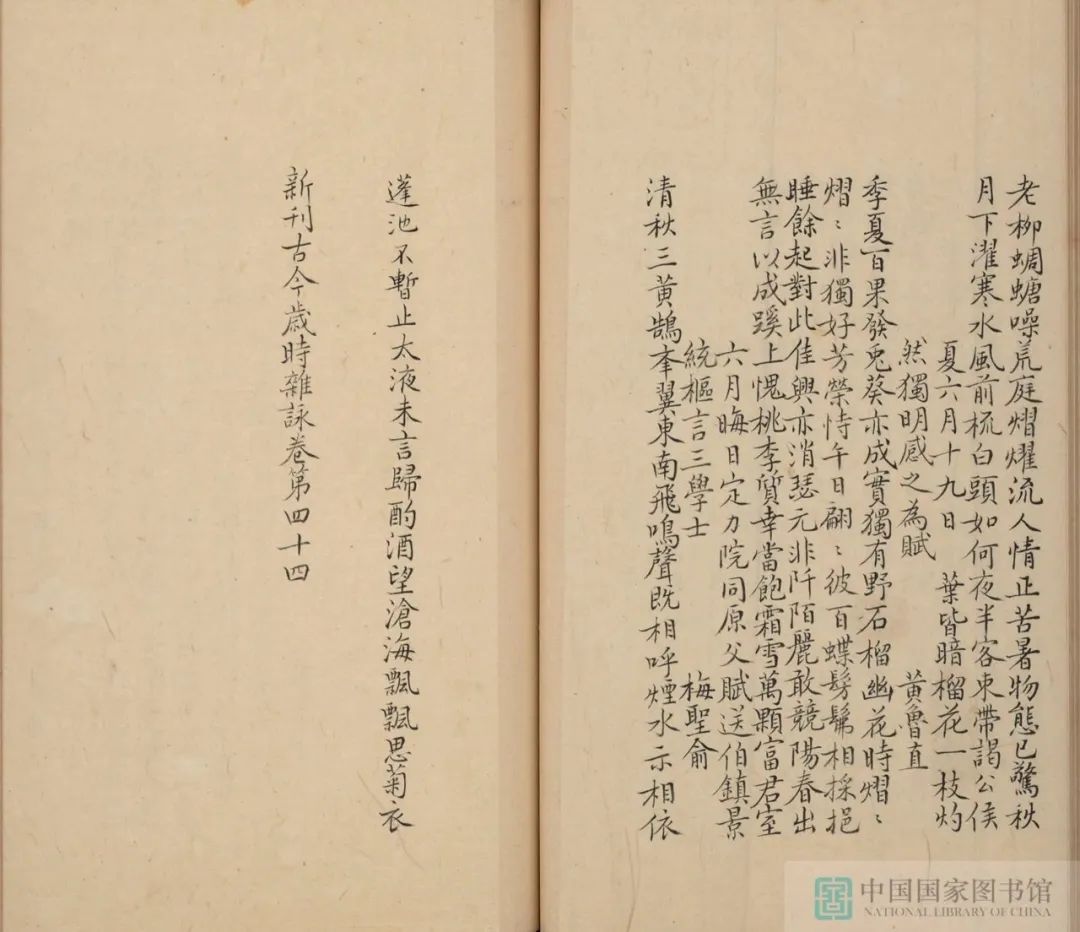 老柳蜩螗噪荒庭熠燿流人情正苦暑物態已驚秋
月下濯寒水風前梳白頭如何夜半客束帶謁公侯
夏六月十九日 葉皆暗榴花一枝灼
然獨明感之為賦 黃魯直
季夏百果發兎葵亦成實獨有野石榴幽花時熠〻
熠〻非獨好芳榮恃午日翩〻彼百蝶髣髴相採挹
睡餘起對此佳興亦消瑟元非阡陌麗敢競陽春出
無言以成蹊上愧桃李質幸當飽霜雪萬顆富君室
六月晦日定力院同原父賦送伯鎮景
純樞言三學士 梅聖俞
清秋三黃鵠夲翼東南飛鳴聲既相呼煙水示相依
蓬池不暫止太液未言歸酌酒望滄海飄飄思菊衣
新刊古今歲時雜詠卷第四十四
中国国家图书馆
NATIONAL LIBRARY OF CHINA